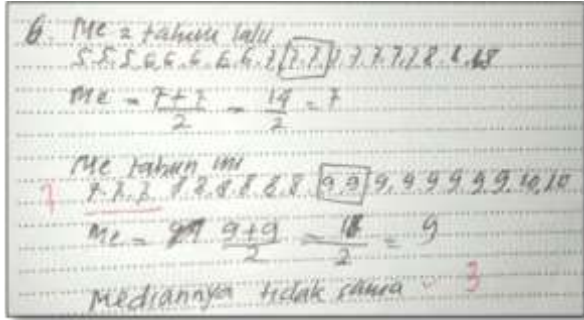 6. Me = tahun lalu
5.5.5.6.6.6.6.6.7.7.7.7.7.7.7.7.8.8.8
Me = 7+7/2 = 14/2 = 7
Me tahun ini
7.7.7. 8.8.8.8.8.8 9.9 9.9.9.9.9.9.10.10
Me = 9+9/2 = 18/2 = 9
Mediannya tidak sama 3